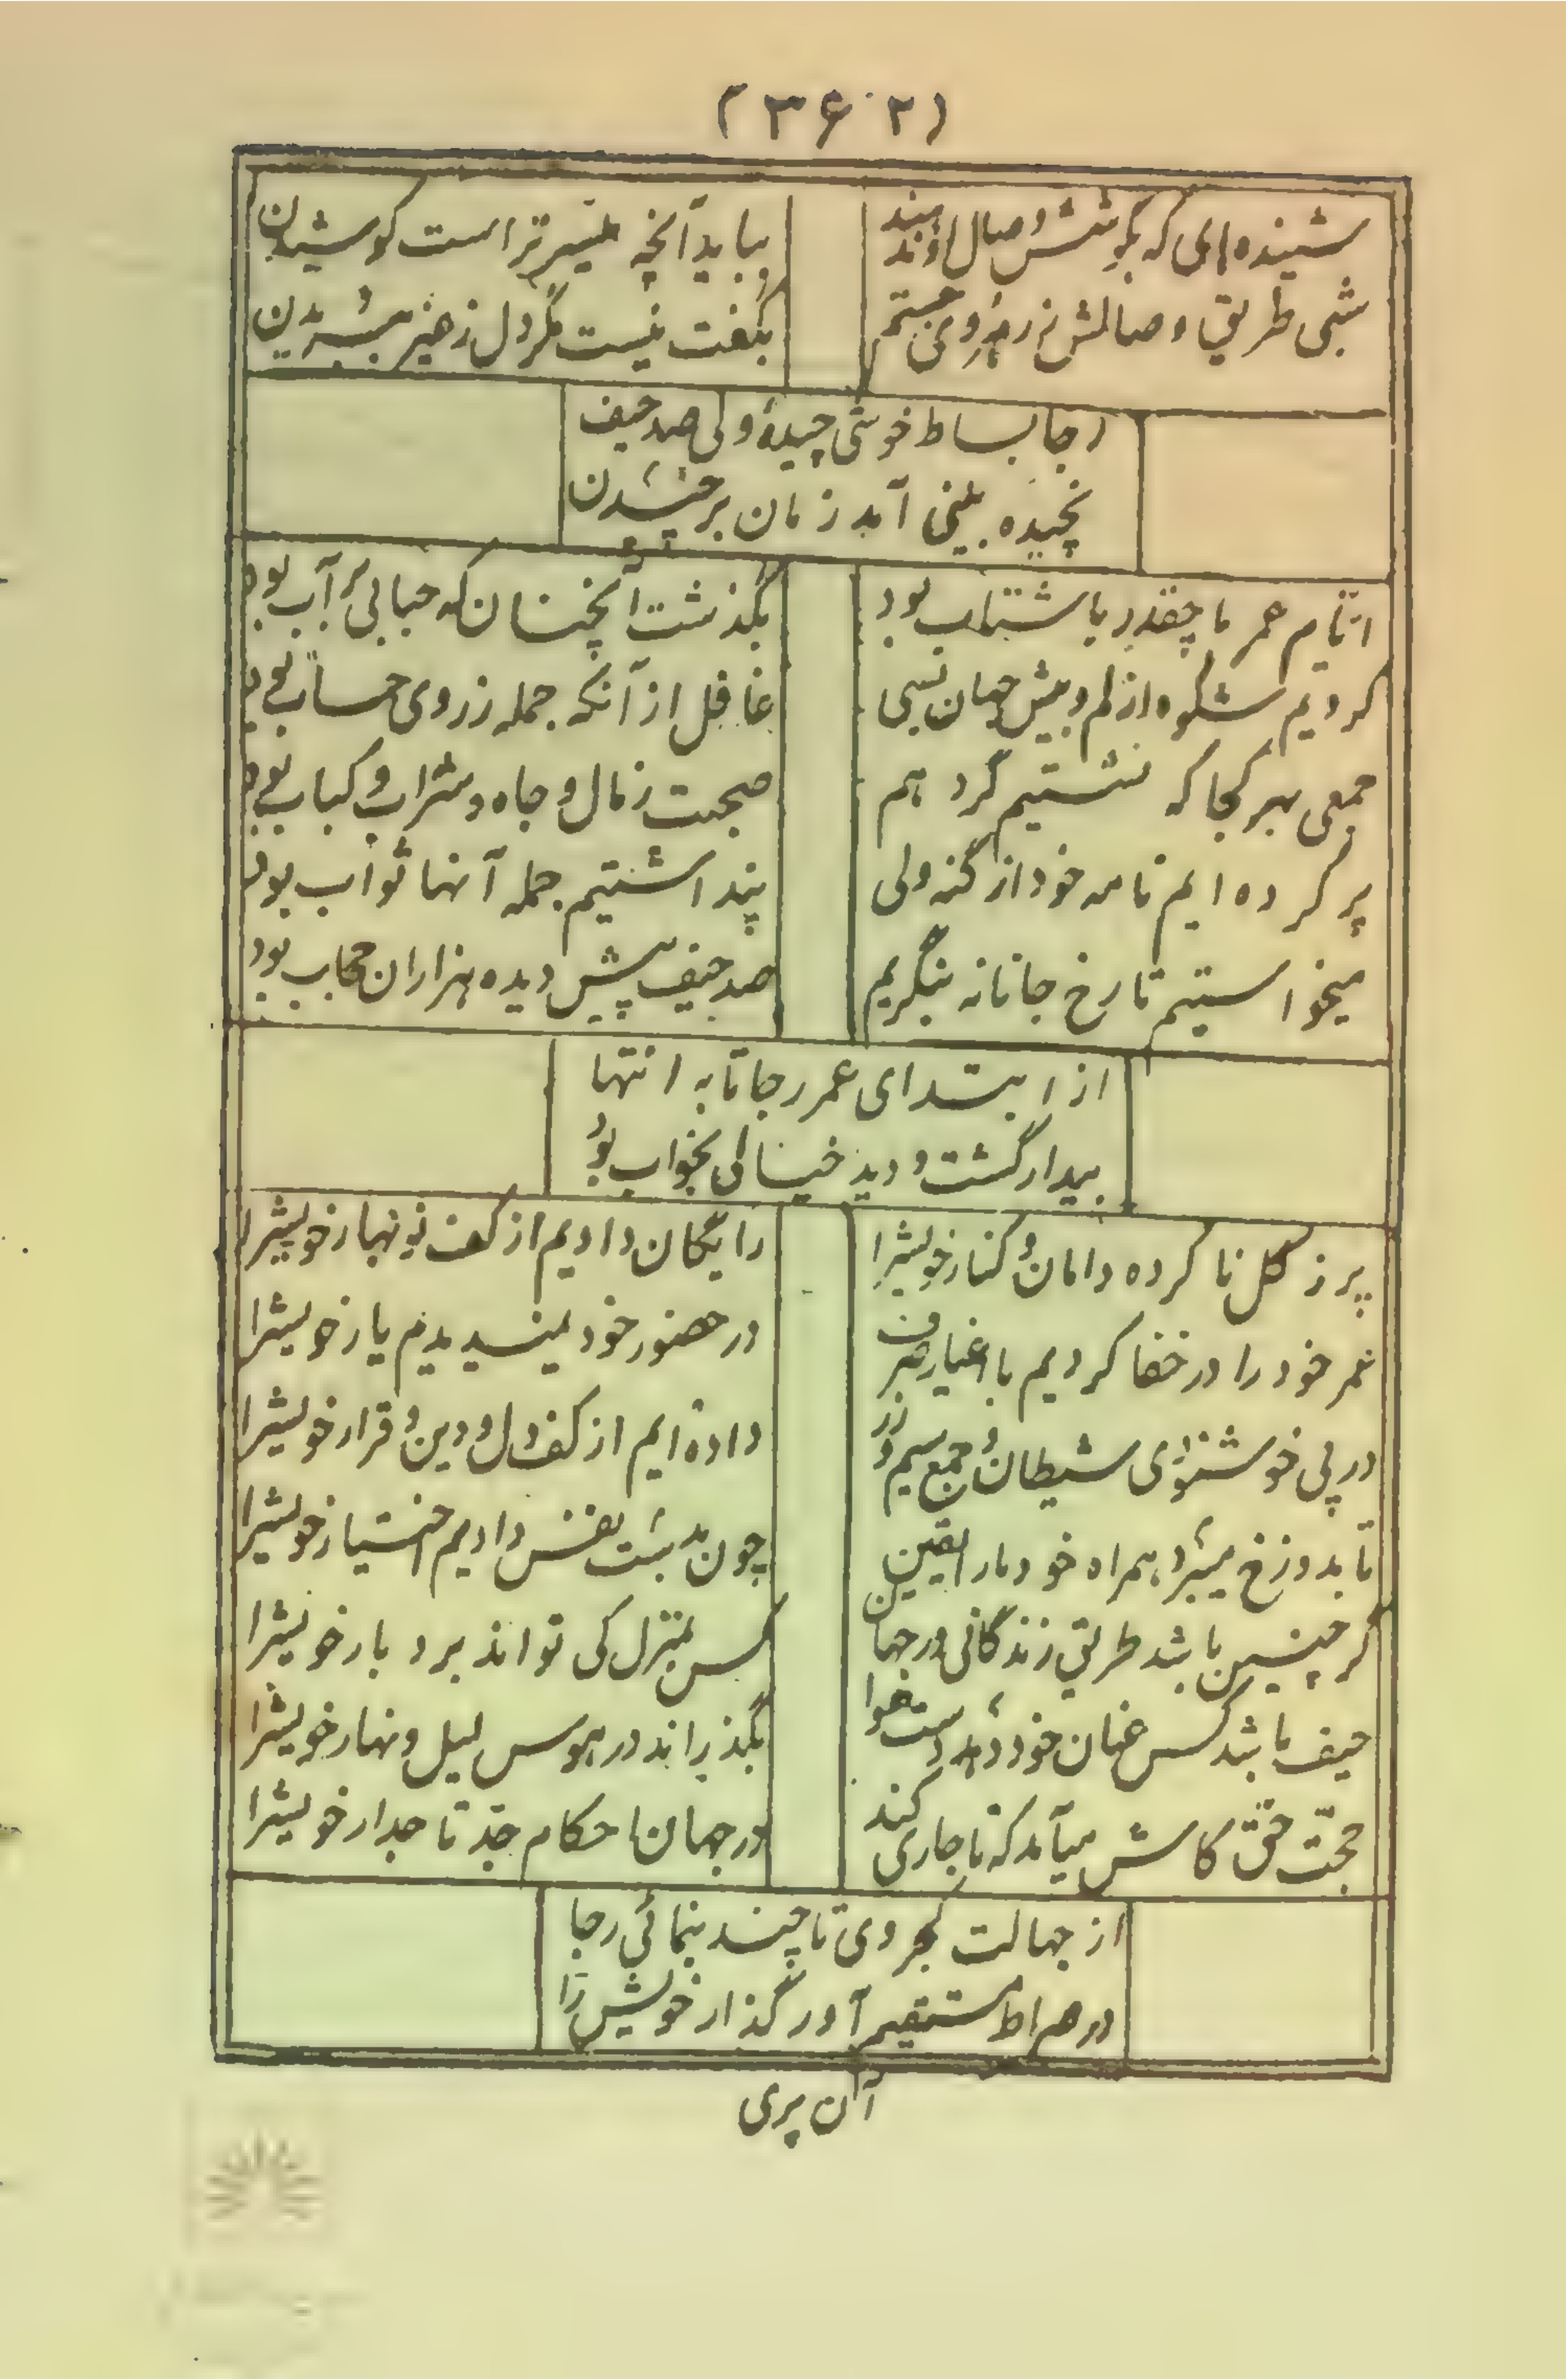 (۳۶۲)
شنیده‌ام که بکوشش وصال او ندهند
بباید آنچه میسر تر است کوشیدن
شبی طریق وصالش ز رهروی جستم
بگفت نیست مگر دل ز غیر ببریدن
رجا بساط خوشی چیدهٔ ولی صد حیف
نچیده بینی آمد زمان برچیدن
ایّام عمر ما چقدر با شتاب بود
بگذشت آنچنان که حبابی بر آب بود
کردیم شکوه از کم و بیش جهان بسی
غافل از آنکه جمله ز روی حساب بود
جمعی بهر کجا که نشستیم گرد هم
صحبت ز مال و جاه و شراب و کباب بود
پر کرده ایم نامه خود از گنه ولی
پنداشتیم جمله آنها ثواب بود
میخواستیم تا رخ جانانه بنگریم
صد حیف پیش دیده هزاران حجاب بود
از ابتدای عمر رجا تا به انتها
بیدار گشت و دید خیالی بخواب بود
پر ز گل نا کرده دامان و کنار خویشرا
رایگان دادیم از کف نوبهار خویشرا
عمر خود را در خفا کردیم با اغیار صرف
در حضور خود نمیدیدیم یار خویشرا
در پی خوشنودی شیطان و جمع سیم و زر
داده ایم از کف دل و دین و قرار خویشرا
تا بدوزخ میبرد همراه خود ما را یقین
چون بدست نفس دادیم اختیار خویشرا
گر چنین باشد طریق زندگانی در جهان
کس بمنزل کی تواند برد بار خویشرا
حیف باشد کس عنان خود دهد دست هوا
بگذراند در هوس لیل و نهار خویشرا
حجّت حق کاش میآمد که تا جاری کند
در جهان احکام جدّ تاجدار خویشرا
از جهالت کجروی تا چند بنمائی رجا
در صراط مستقیم آور گذار خویش را
آن پری